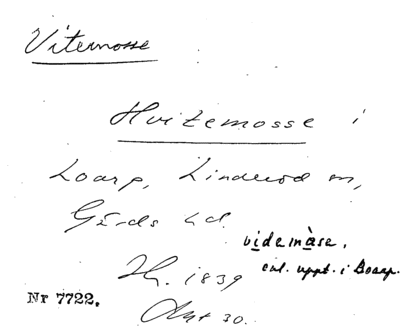 Vitemosse
Hvitemosse i
Loarp, Linderöd sn,
Gärds hd.
videmåse.
enl. uppt. i Boarp.
1839
Akt 30.
Nr 7722.